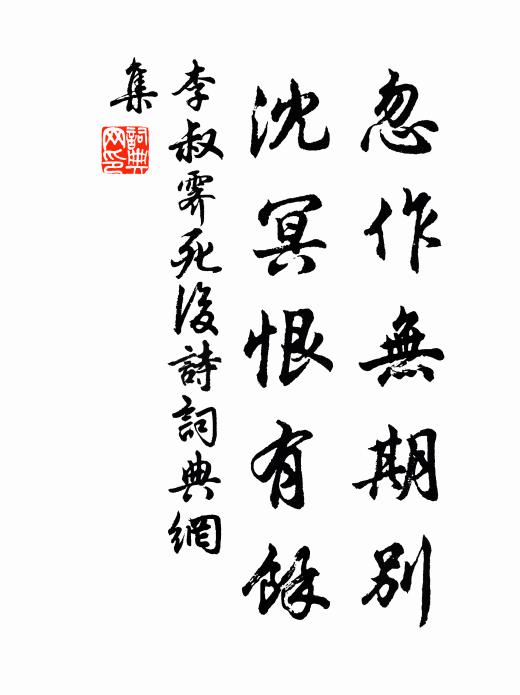 忽作無期別
沈冥恨有餘
李叔霽死後詩詞典網
集
詞典網印